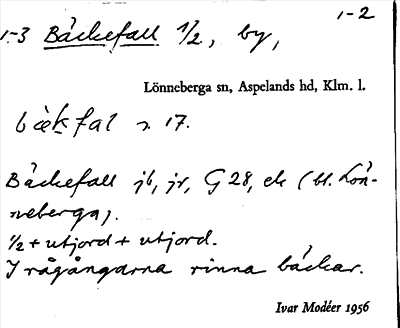 1-2
1-3 Bäckefall 1/2, by,
Lönneberga sn, Aspelands hd, Klm. l.
bækfal n. 17.
Bäckefall jb, jr, G28, ek (bl. Lön-
neberga).
1/2 + utjord + utjord.
I rågångarna rinna bäckar.
Ivar Modéer 1956